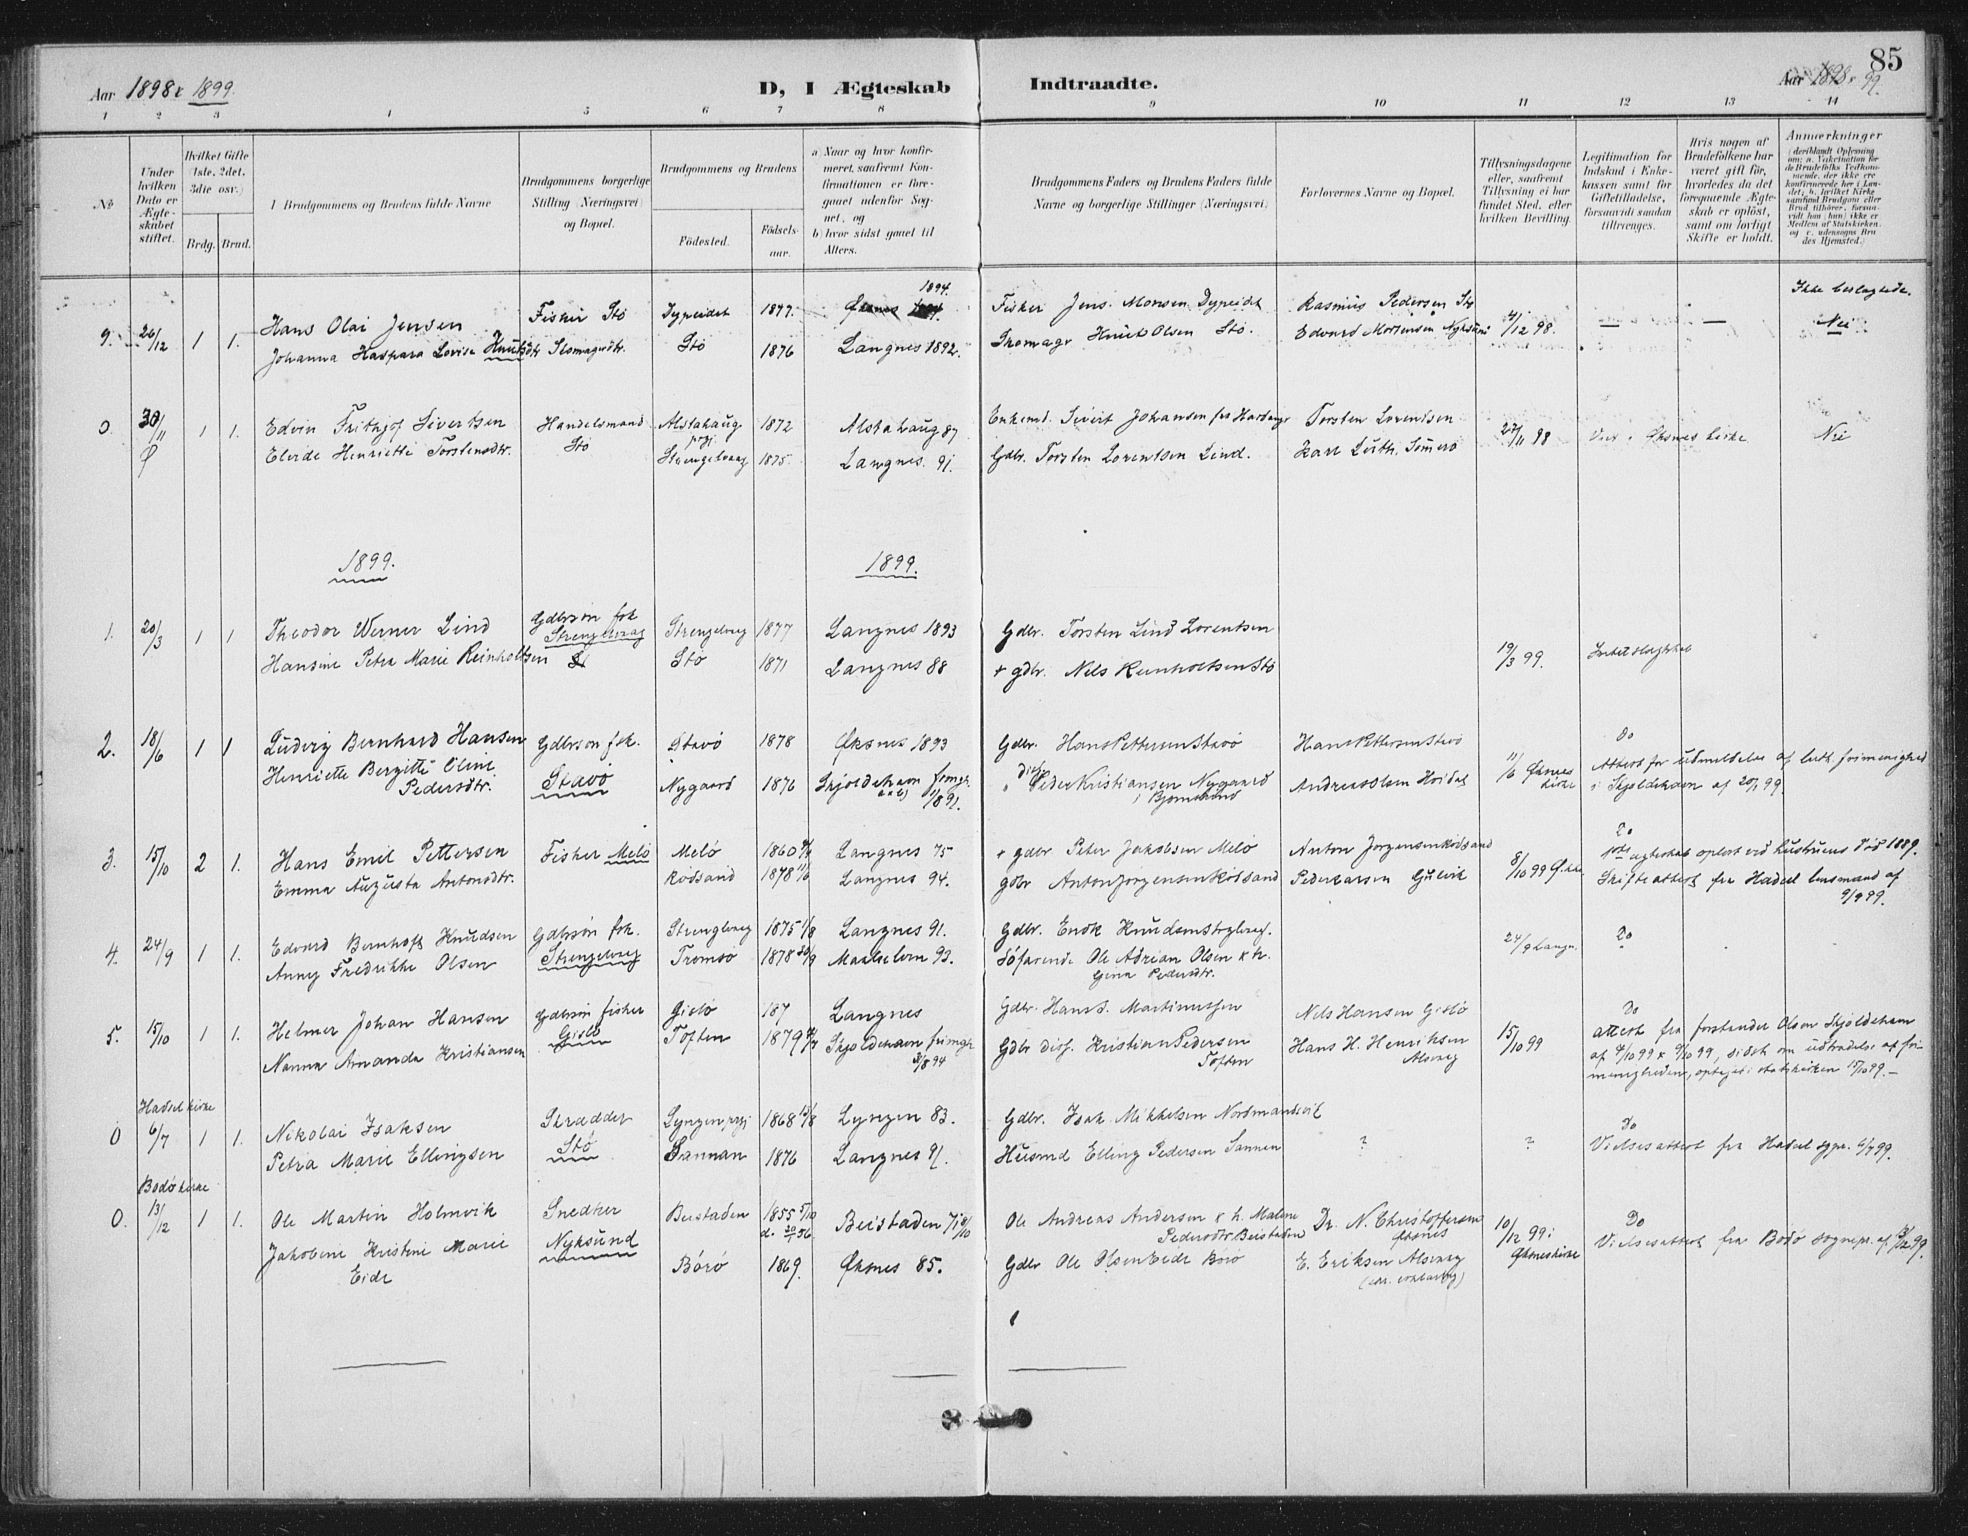 85
Aar 1898 & 1899.
D, I Ægteskab Indtraadte.
Aar 1898 & 99.
1 2 3 4 5 6 7 8 9 10 11 12 13 14
No
Under hvilken Dato er Ægteskabet stiftet.
Hvilket Gifte (1ste, 2det, 3die osv.)
Brdg. Brud.
Brudgommens og Brudens fulde Navne
Brudgommens borgerlige Stilling (Næringsvei) og Bopæl.
Brudgommens og Brudens
Fødested. Fødselsaar.
a) Naar og hvor konfirmeret, saafremt Konfirmationen er foregaaet udenfor Sognet, og
b) hvor sidst gaaet til Alters.
Brudgommens Faders og Brudens Faders fulde Navne og borgerlige Stillinger (Næringsvei)
Forlovernes Navne og Bopæl.
Tillysningsdagene eller, saafremt Tillysning ei har fundet Sted, efter hvilken Bevilling.
Legitimation for Indskud i Enkekassen samt for Giftetilladelse, forsaavidt saadan tiltrænges.
Hvis nogen af Brudefolkene har været gift før, hvorledes da det foregaaende Ægteskab er opløst, samt om lovligt Skifte er holdt.
Anmærkninger (deriblandt Oplysning om: a. Vakcination for de Brudefolks Vedkommende, der ikke ere konfirmerede her i Landet; b. hvilket Kirkesamfund Brudgom eller Brud tilhører, forsaavidt han (hun) ikke er Medlem af Statskirken, og c. udensogns Brudes Hjemsted.)
1894. Ikke beslægtede.
9. 26/12 1 1. Hans Olai Jensen Fisker Stø Dypeidet 1877 Øksnes Fisker Jens Monsen Dypeidet Rasmus Pedersen Stø 4/12 98. — — Nei
Johanna Kaspara Lovise Knutsdtr Stø 1876 Langnes 1892. Knut Olsen Stø. Edvard Mortensen Nyksund
0. 30/11 1 1. Edvin Frithjof Sivertsen Handelsmand Alstahaug 1872 Alstahaug 87 Enkemd. Sivert Johansen fra Torsten Lorentsen 27/11 98 Øksnes kirke Nei
Ø Elerde Henriette Torstensdtr. Stø Strengelvaag 1875. Langnes. 91. Gdbr. Torsten Lorentsen Lind. Karl
1899. 1899.
1. 20/3 1 1 Theodor Werner Lind Gdbrsøn fsk Strengelvag Strengelvag 1877 Langnes 1893 Gdbr. Torsten Lind Lorentsen
Hansine Petra Marie Reinholtsen Stø 1871 Langnes 88 + gdbr. Nils Reinholtsen Stø 19/3 99.
2. 18/6 1 1 Ludvig Bernhard Hansen Gdbrsøn fsk. Stavø 1878 Øksnes 1893 Gdbr. Hans Pettersen Stavø Hans Pettersen Stavø Do
Henriette Bergitte Oline Pedersdtr. Stavø Nygaard 1876 Skjoldehavn frimgh. 1/8 91. Peder Kristiansen Nygaard Andreas Olsen 11/6 Øksnes kirke Attest for udmeldelse af luth. frimenighed
i Skjoldehavn af 20/1 99.
3. 15/10 2 1. Hans Emil Pettersen Fisker Melø Melø 1860 Langnes 75 + gdbr Peter Jakobsen Melø Anton Jørgensen Rødsand Do
1ste ægteskab opløst ved hustruens død 1889.
Emma Augusta Antonsdtr. Rødsand 1878 Langnes 94. gdbr Anton Jørgensen Rødsand Peder Larsen Gulvik 8/10 99 Skifteattest fra Hadsel lensmand af 9/9 99.
4. 24/9 1 1. Edvard Bernhoft Knudsen Gdbrsøn fsk. Strengelvag 1875 1/8 Langnes 91. Gdbr. Enok Knudsen 24/9 Langn. Do
Anny Fredrikke Olsen Strengelvag Tromsø 1878 30/9 Maalselven 93. Søfarende Ole Adrian Olsen & h.
Gina Pedersdtr.
5. 15/10 1 1. Helmer Johan Hansen Gdbrsøn fisker Gislø 187 Langnes Gdbr. Hans Martinussen Nils Hansen Gislø Do
Nanna Amanda Kristiansen Gislø Toften 1879 Skjoldehavn frimgh 3/8 94 Gdbr diss. Kristian Pedersen Toften Hans H. Henriksen Alsvaag 15/10 99 attest fra forstander Olsen Skjoldehavn
af 4/10 99 & 9/10 99, sidst om udtrædelse af frimenigheden, optaget i statskirken 15/10 99. —
Hadsel kirke
0 6/7 1 1. Nikolai Isaksen Skrædder Lyngen prgj 1868 15/8 Lyngen 83. Gdbr. Isak Mikkelsen Nordmandvik Do
Petra Marie Ellingsen Stø Sannan 1876 Langnes 91. Husmd Elling Pedersen Sannan ? ? Vielsesattest fra Hadsel sgpr. 6/7 99.
Bodø kirke
0. 13/12 1 1. Ole Martin Holmvik Snedker Beistaden 1855 5/10 Beistaden 71 Ole Andreas Andersen & h. Malene Pedersdtr Beistaden Dr. N. Christoffersen Øksnes 10/12 99 i Øksnes kirke Do
d. 20/1 56
Jakobine Kristine Marie Eide Nyksund Børø 1869. Øksnes 85. Gdbr Ole Olsen Eide Børø E. Eriksen Alsvaag Vielsesattest fra Bodø sognepr. af 99.